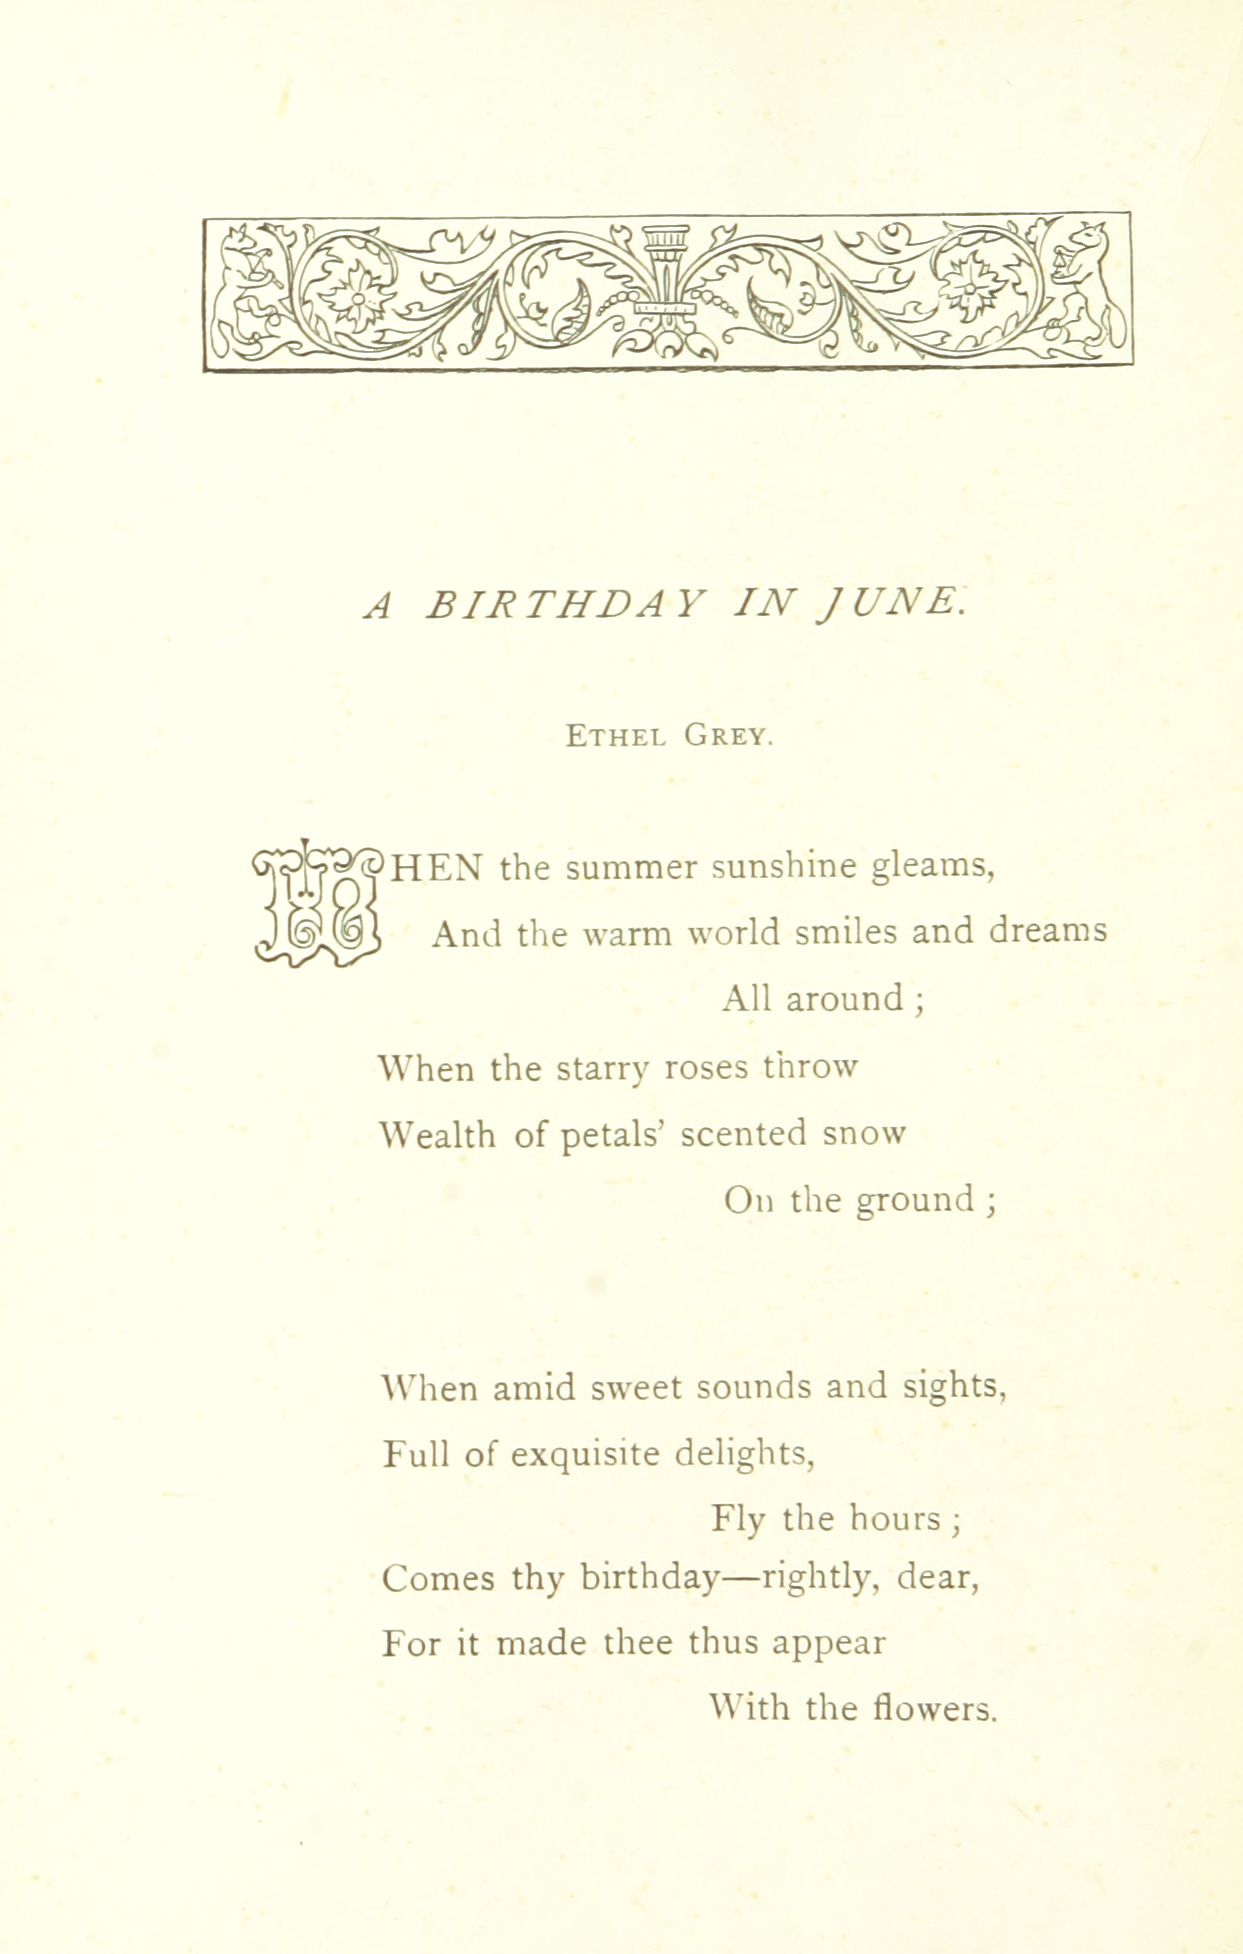 A BIRTHDAY IN JUNE.
ETHEL GREY.
WHEN the summer sunshine gleams,
And the warm world smiles and dreams
All around ;
When the starry roses throw
Wealth of petals’ scented snow
On the ground ;
When amid sweet sounds and sights,
Full of exquisite delights,
Fly the hours ;
Comes thy birthday—rightly, dear,
For it made thee thus appear
With the flowers.